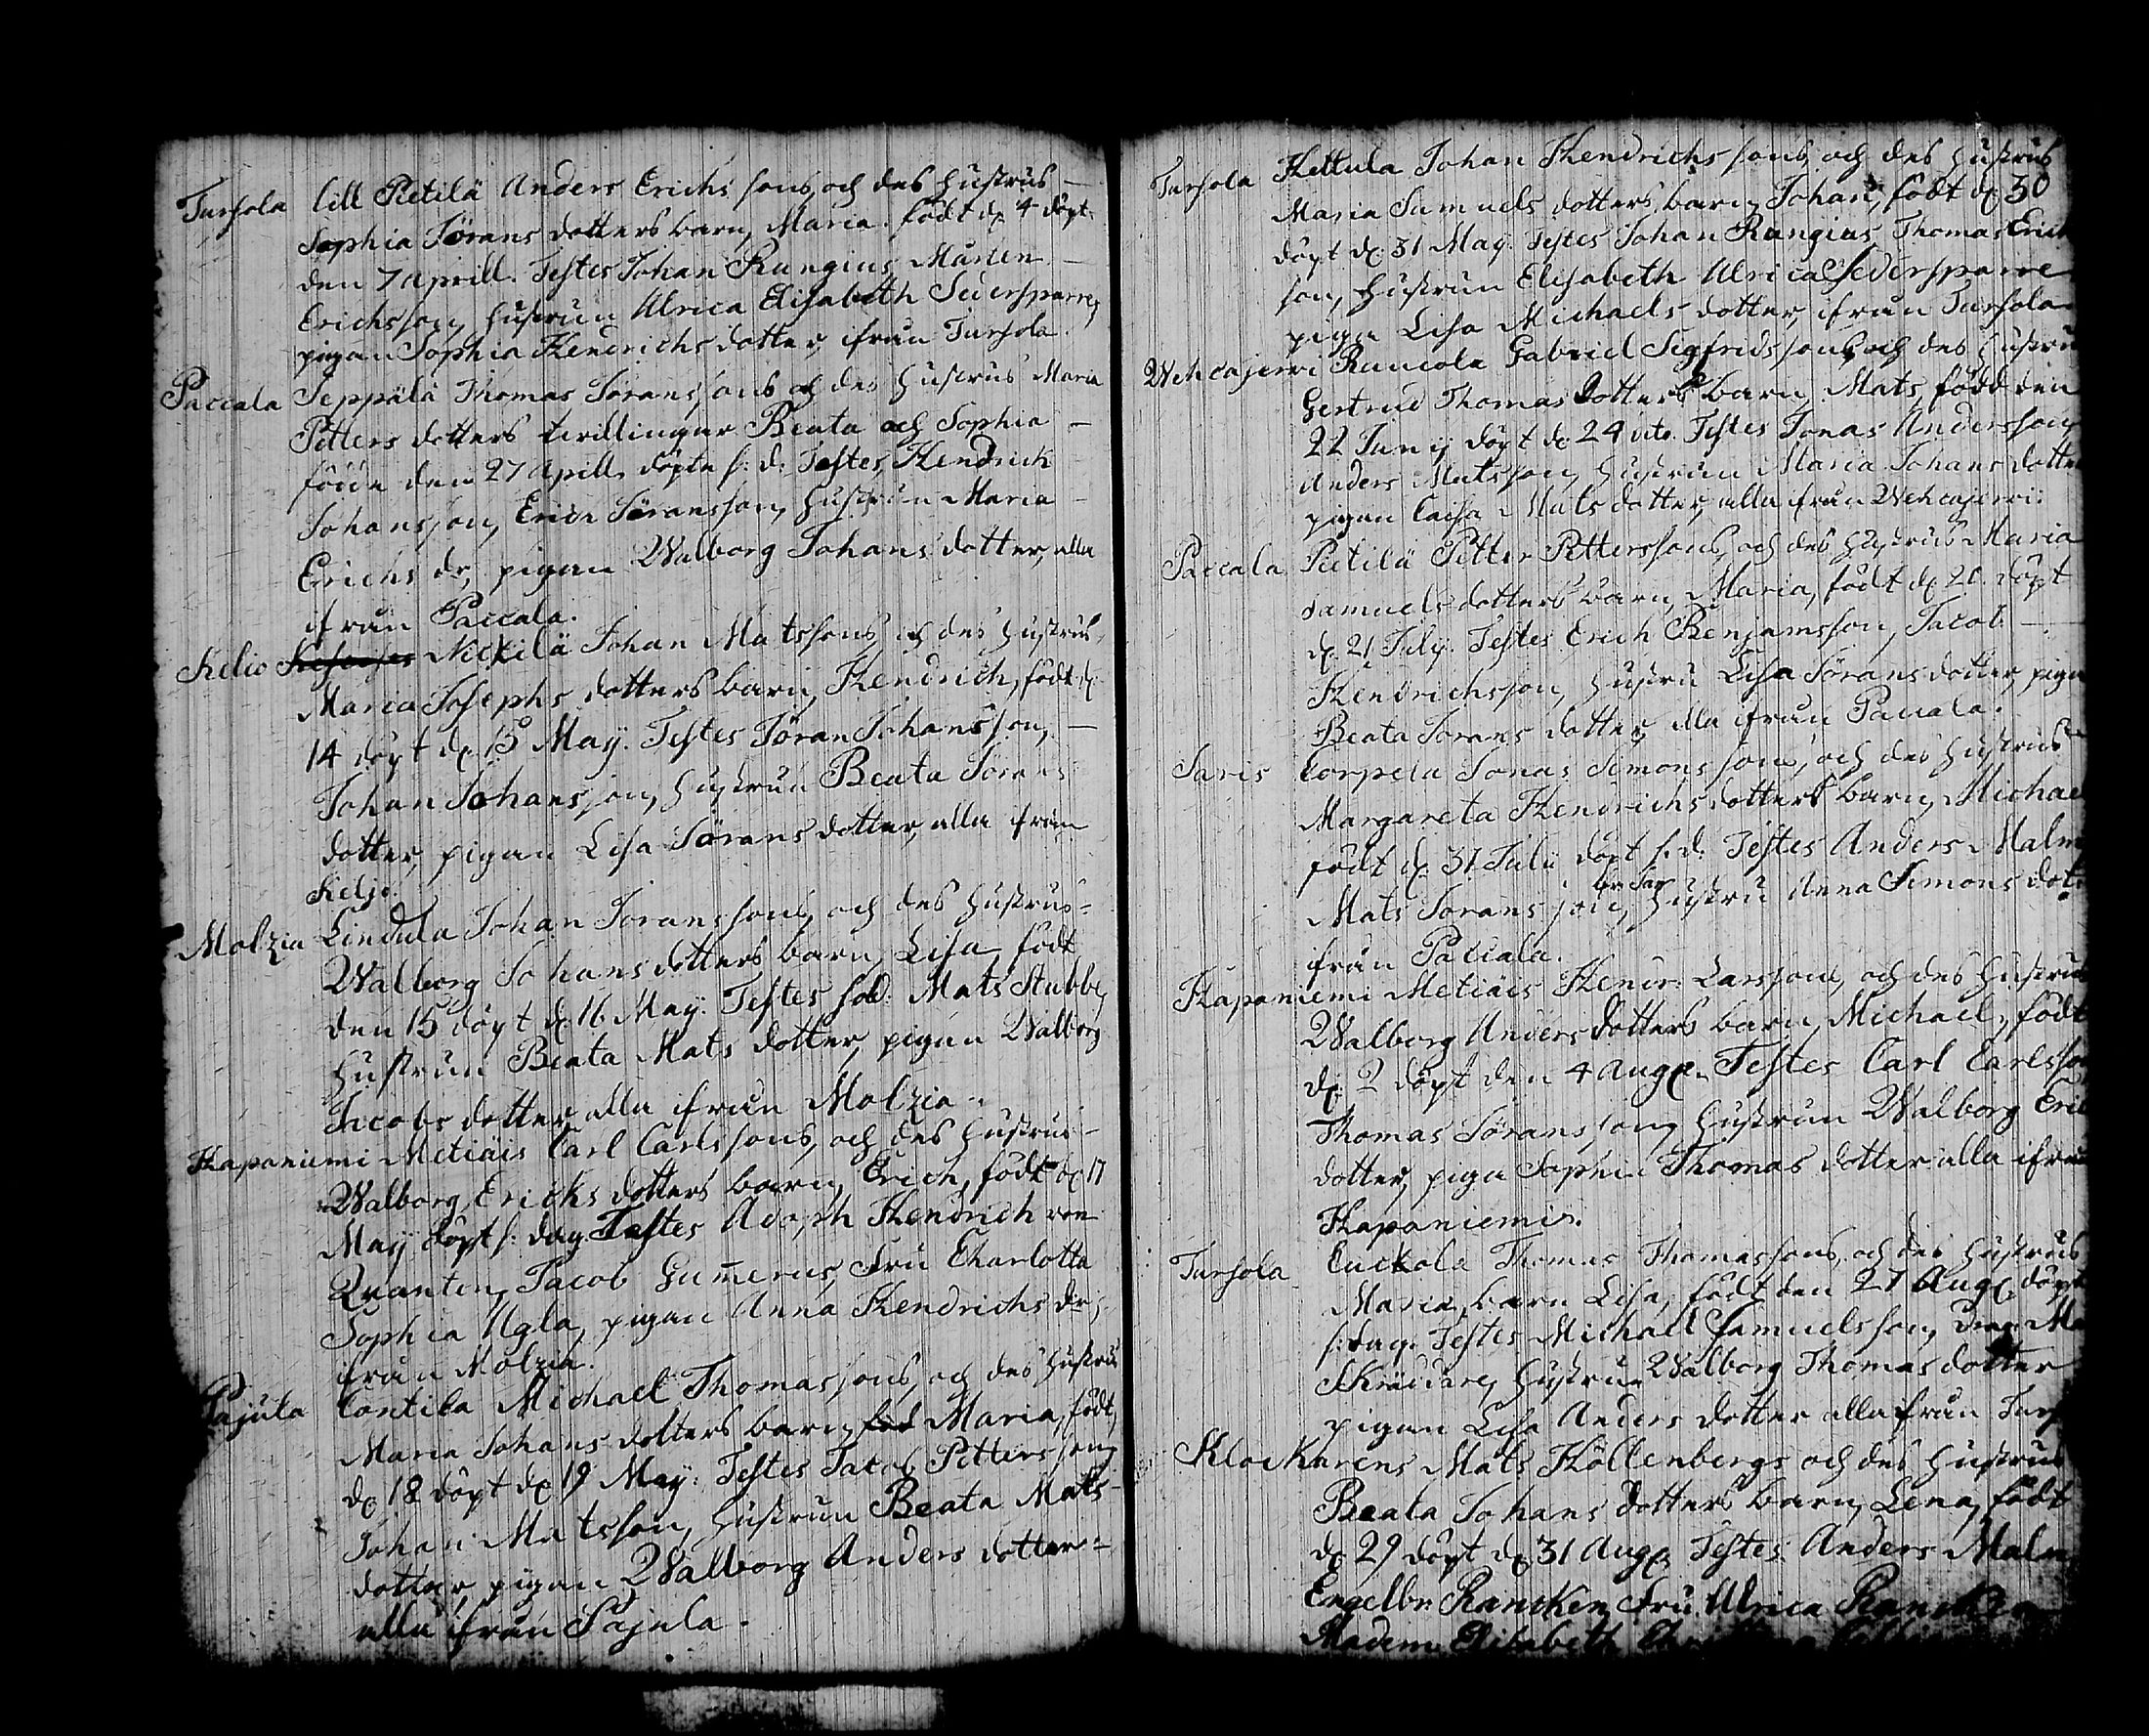 Tursola lill Pietilä Anders Erichs sons och des hustrus
Sophia Jörans dotters barn, Maria. födt d. 4 döpt
den 7 Aprill. Testes Johan Rungius, Mårten
Erichsson, hustrun Ulrica Elisabeth Sedersparre,
pigan Sophia Hendrichs dotter, ifrån Tursola.
Paccala Seppälä Thomas Jörans sons och des hustrus Maria
Petters dotters tvillingar Beata och Sophia
födde den 27 Apill, döpte s: d: Testes, Hendrick
Johansson, Erich Jöransson, hustrun Maria
Erichs dr, pigan Walborg Johans dotter, alla
ifrån Paccala.
Kelio Nickilä Johan Matssons, och des hustrus
Maria Josephs dotters barn, Hendrich, födt d.
14 döpt d. 15 Maÿ. Testes Jöran Johansson,
Johan Johansson, hustrun Beata Jörans
dotter, pigan Lisa Jörans dotter, alla ifrån
Keljo.
Molzia Lindula Johan Joranssons, och des hustrus
Walborg Johans dotters barn, Lisa, födt
den 15 döpt d. 16 Maÿ. Testes sold: Mats Stubbe,
hustrun Beata Mats dotter, pigan Walborg
Jacobs dotter, alla ifrån Molzia.
Hapaniemi Metiäis Carl Carlssons, och des hustrus
Walborg Erichs dotters barn, Erich, födt d. 17
Maÿ döpt s: dag. Testes Adoph Hendrich von
Qvanten, Jacob Gum̄erus, Fru Charlotta
Sophia Ugla, pigan Anna Hendrichs dr,
ifrån Molzia.
Pajula Contila Michael Thomassons, och des hustrus
Maria Johans dotters barn, Maria, födt,
d. 18 döpt d. 19 Maÿ. Testes Jacob Pettersson,
Johan Matsson, hustrun Beata Mats
dotter, pigan Walborg Anders dotter
alla ifrån Pajula.
Tursola Hettula Johan Hendrichs sons, och des hustrus
Maria Samuels dotters barn, Johan, födt d. 30
döpt d. 31 Maÿ. Testes Johan Rungius, Thomas Erich
son, hustrun Elisabeth Ulrica Sedersparre
piga Lisa Michaels dotter, ifrån Tursola
Wehcajerwi Rancola Gabriel Segfridssons, och des hustru
Gertrud Thomas dotters barn, Mats, född den
22 Junij döpt d. 24 dito. Testes Jonas Andersson,
Anders Matsson, hustrun Maria Johans dotte
pigan Caisa Mats dotter, alla ifrån Wehcajerwi.
Paccala Pietilä Petter Petterssons, och des hustrus Maria
Samuels dotters barn, Maria, födt d. 20. döpt
d. 21 July. Testes Erich Benjamsson, Jacob
Hendrichsson, hustru Lisa Jörans dotter, piga
Beata Jorans dotter, alla ifrån Paccala.
Saris Corpela Jonas Simons sons, och des hustrus
Margareta Hendrichs dotters barn, Michae
födt d. 31 Julii döpt s: d: Testes Anders Malm
Mats Joransson, hustru Anna Simons dot
ifrån Paccala.
Hapaniemi Metiäis Hendr: Larssons, och des hustru
Walborg Anders dotters barn, Michael, födt
d. 2 döpt den 4 Aug. Testes Carl Carlsso
Thomas Jöransson, hustrun Walborg Eric
dotter, piga Sophia Thomas dotter alla ifrå
Hapaniemi.
Tursola Cuckola Thomas Thomassons, och des hustrus
Maria, barn Lisa, födt den 27 Aug. döpt
s: dag. Testes Michael Samuelsson,
Skräddare, hustrun Walborg Thomas dotter
pigan Lisa Anders dotter alla ifrån Turs
Klockarens Mats Höllenbergs och des hustrus
Beata Johans dotters barn, Lena, födt
d. 29 döpt d. 31 Aug. Testes Anders Malm
Engelbr: Rancken, Fru Ulrica Rancken
Madem: Elisabeth